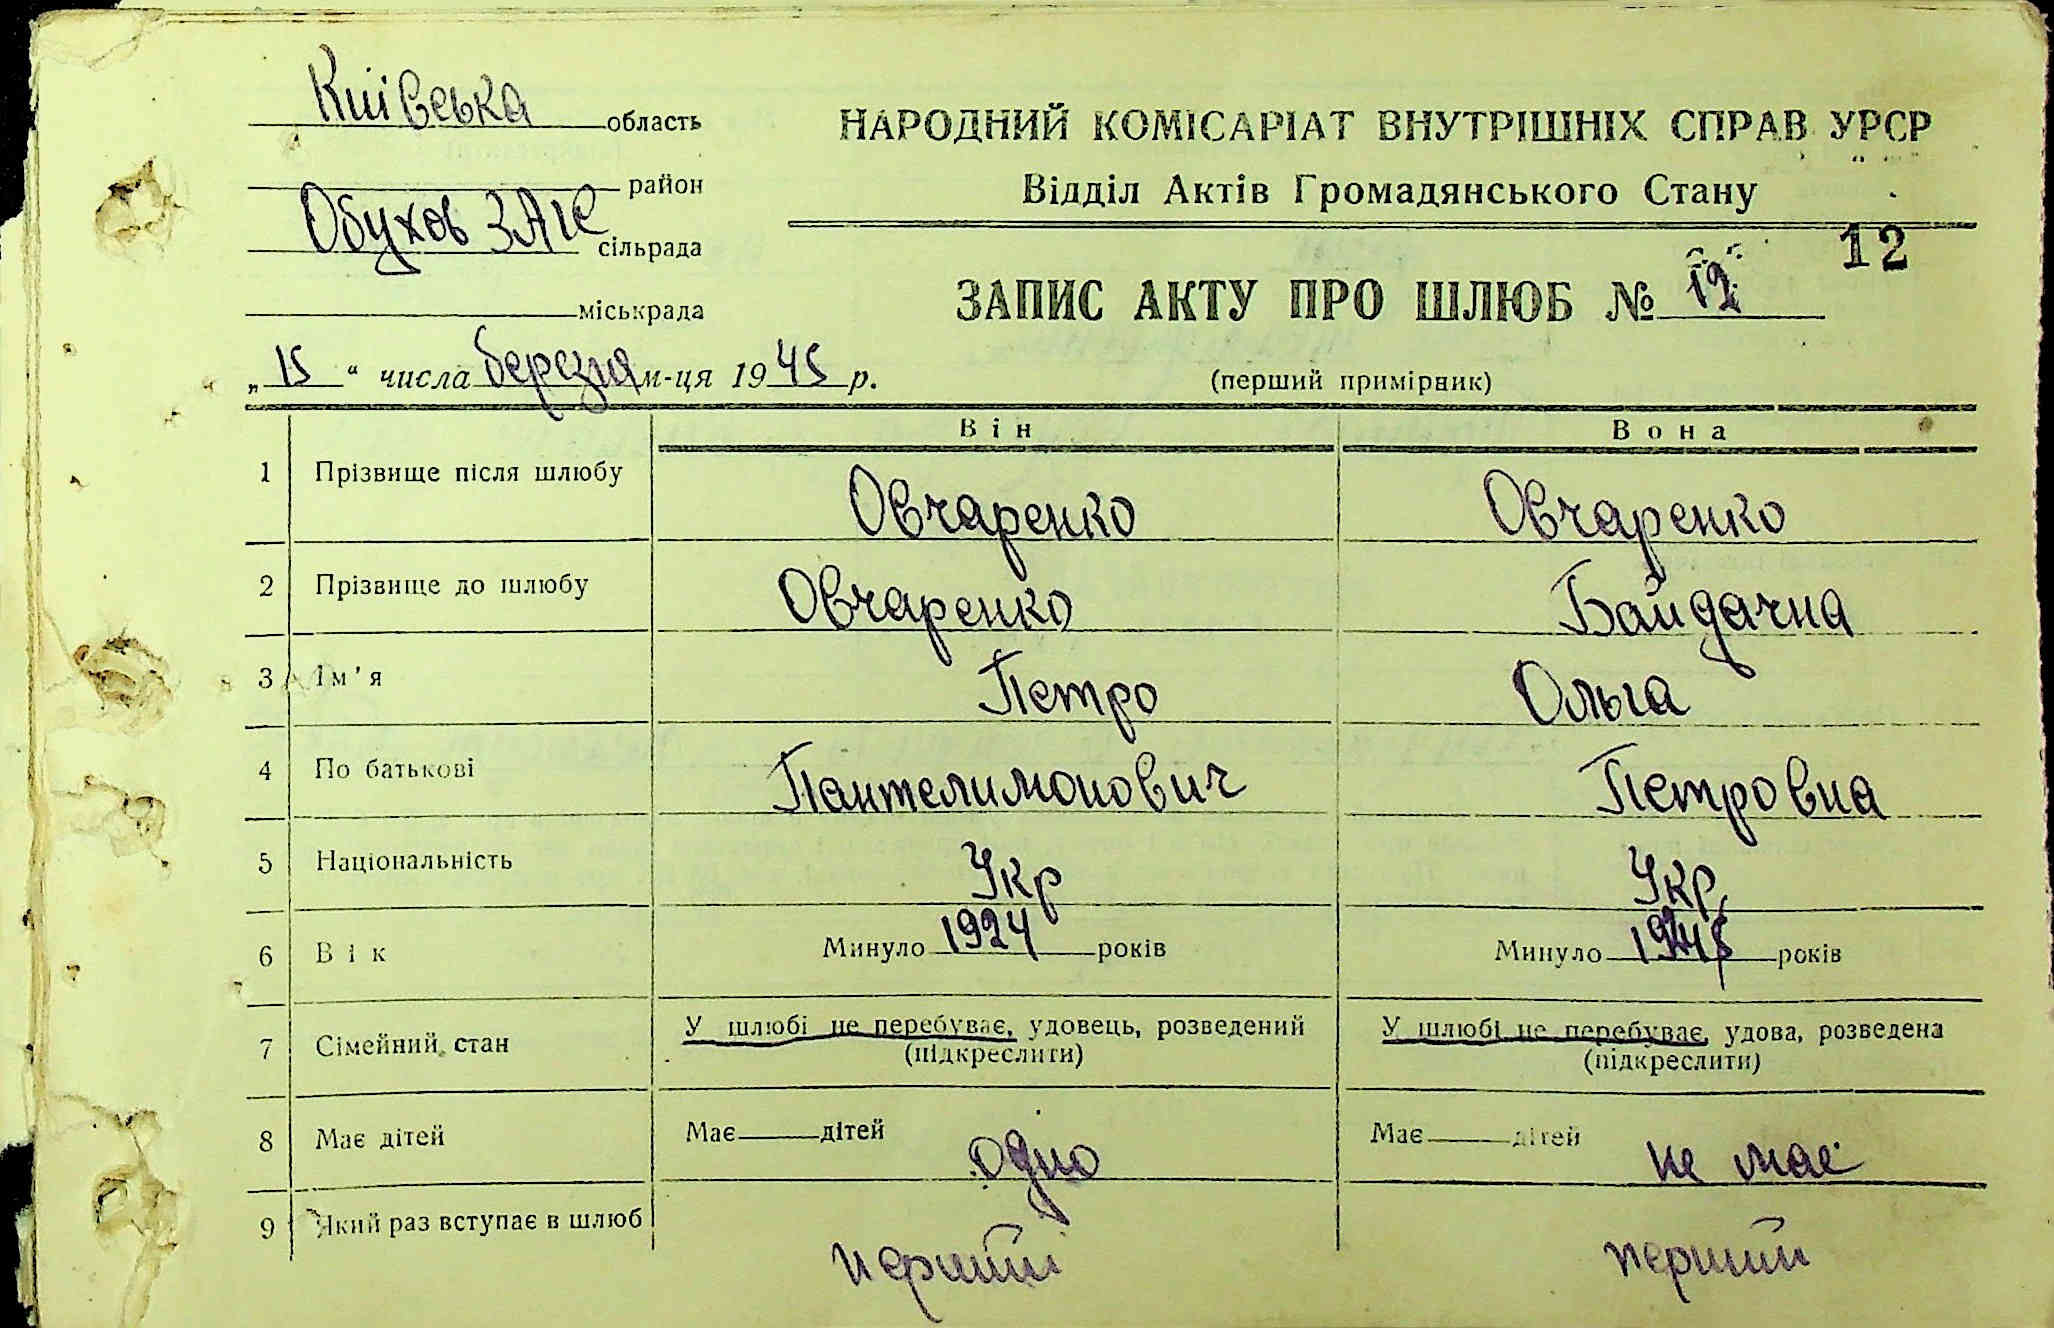 Київська область
район
Обухов ЗАГС сільрада
міськрада
НАРОДНИЙ КОМІСАРІАТ ВНУТРІШНІХ СПРАВ УРСР
Відділ Актів Громадянського Стану
12
ЗАПИС АКТУ ПРО ШЛЮБ № 12
„15“ числа березня м-ця 1945 р.
(перший примірник)
Він Вона
1 Прізвище після шлюбу Овчаренко Овчаренко
2 Прізвище до шлюбу Овчаренко Байдачна
3 Ім'я Петро Ольга
4 По батькові Пантелимонович Петровна
5 Національність Укр Укр
6 Вік Минуло 1924 років Минуло років
7 Сімейний стан У шлюбі не перебуває, удовець, розведений У шлюбі не перебуває, удова, розведена
(підкреслити) (підкреслити)
8 Має дітей Має дітей одно Має дітей не має
9 Який раз вступає в шлюб перший перший